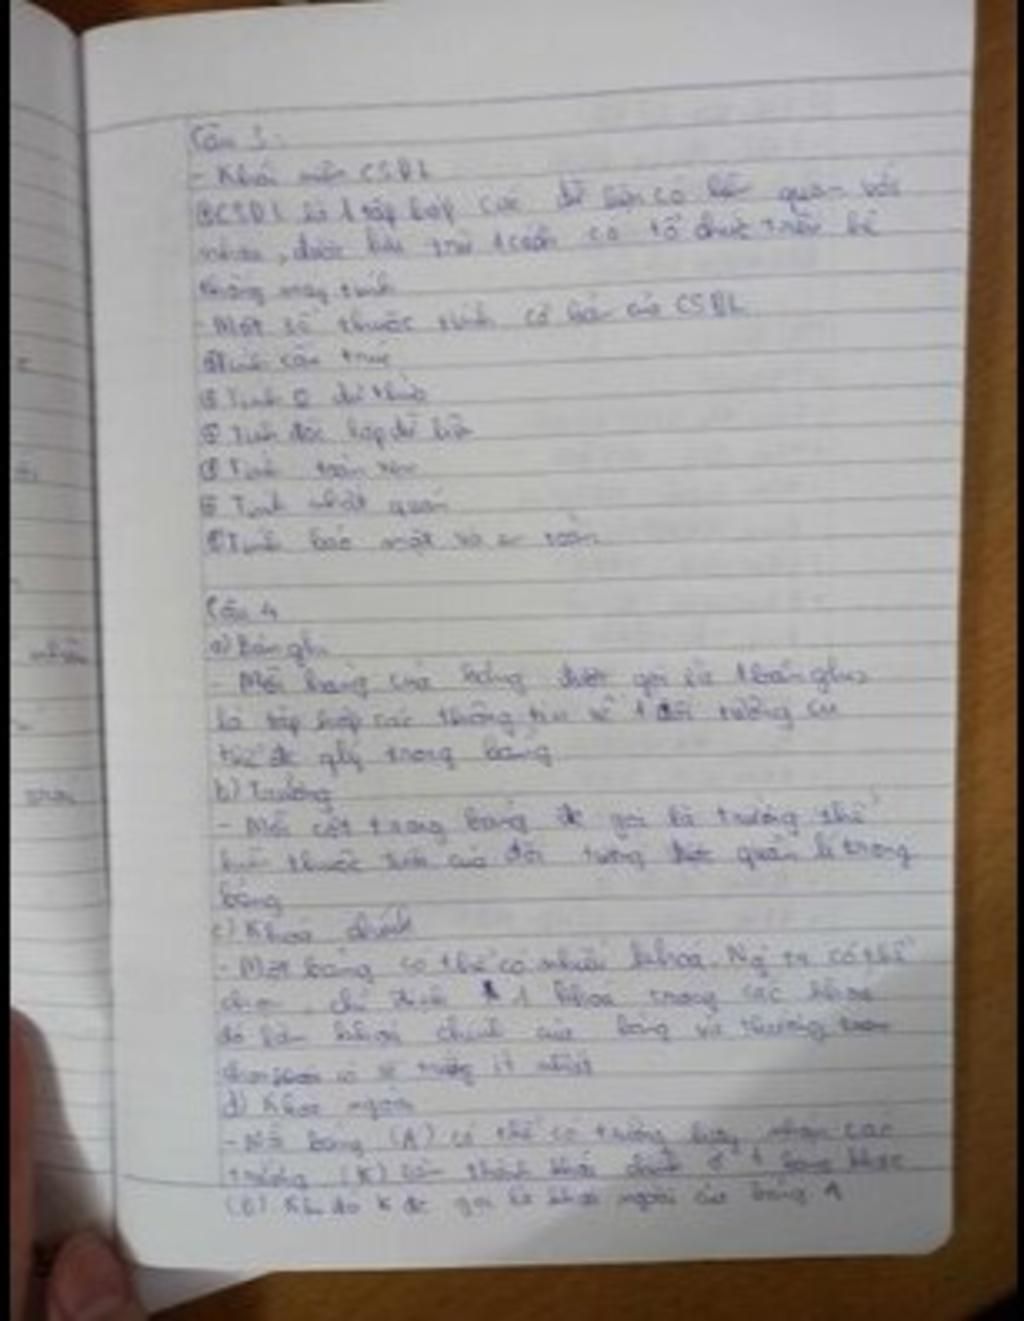 Câu 3:
- Khái niệm CSDL
CSDL là 1 tập hợp các dữ liệu có liên quan với
nhau, được lưu trữ 1 cách có tổ chức trên hệ
thống máy tính
- Một số thuộc tính cơ bản của CSDL
Tính cấu trúc
Tính 0 dư thừa
Tính độc lập dữ liệu
Tính toàn vẹn
Tính nhất quán
Tính bảo mật và an toàn
Câu 4
a) Bản ghi
- Mỗi hàng của bảng được gọi là 1 bản ghi,
là tập hợp các thông tin về 1 đối tượng cụ
thể đc qlý trong bảng
b) Trường
- Mỗi cột trong bảng đc gọi là trường thể
hiện thuộc tính của đối tượng được quản lí trong
bảng
c) Khoá chính
- Một bảng có thể có nhiều khoá. Ng ta có thể
chọn, chỉ định 1 khoá trong các khoá
đó làm khoá chính của bảng và thường
chọn khoá có số trường ít nhất
d) Khoá ngoài
- bảng (A) có thể có trường hay nhóm các
trường (K) làm thành khoá chính ở 1 bảng khác
(B) Khi đó K đc gọi là khoá ngoài của bảng A